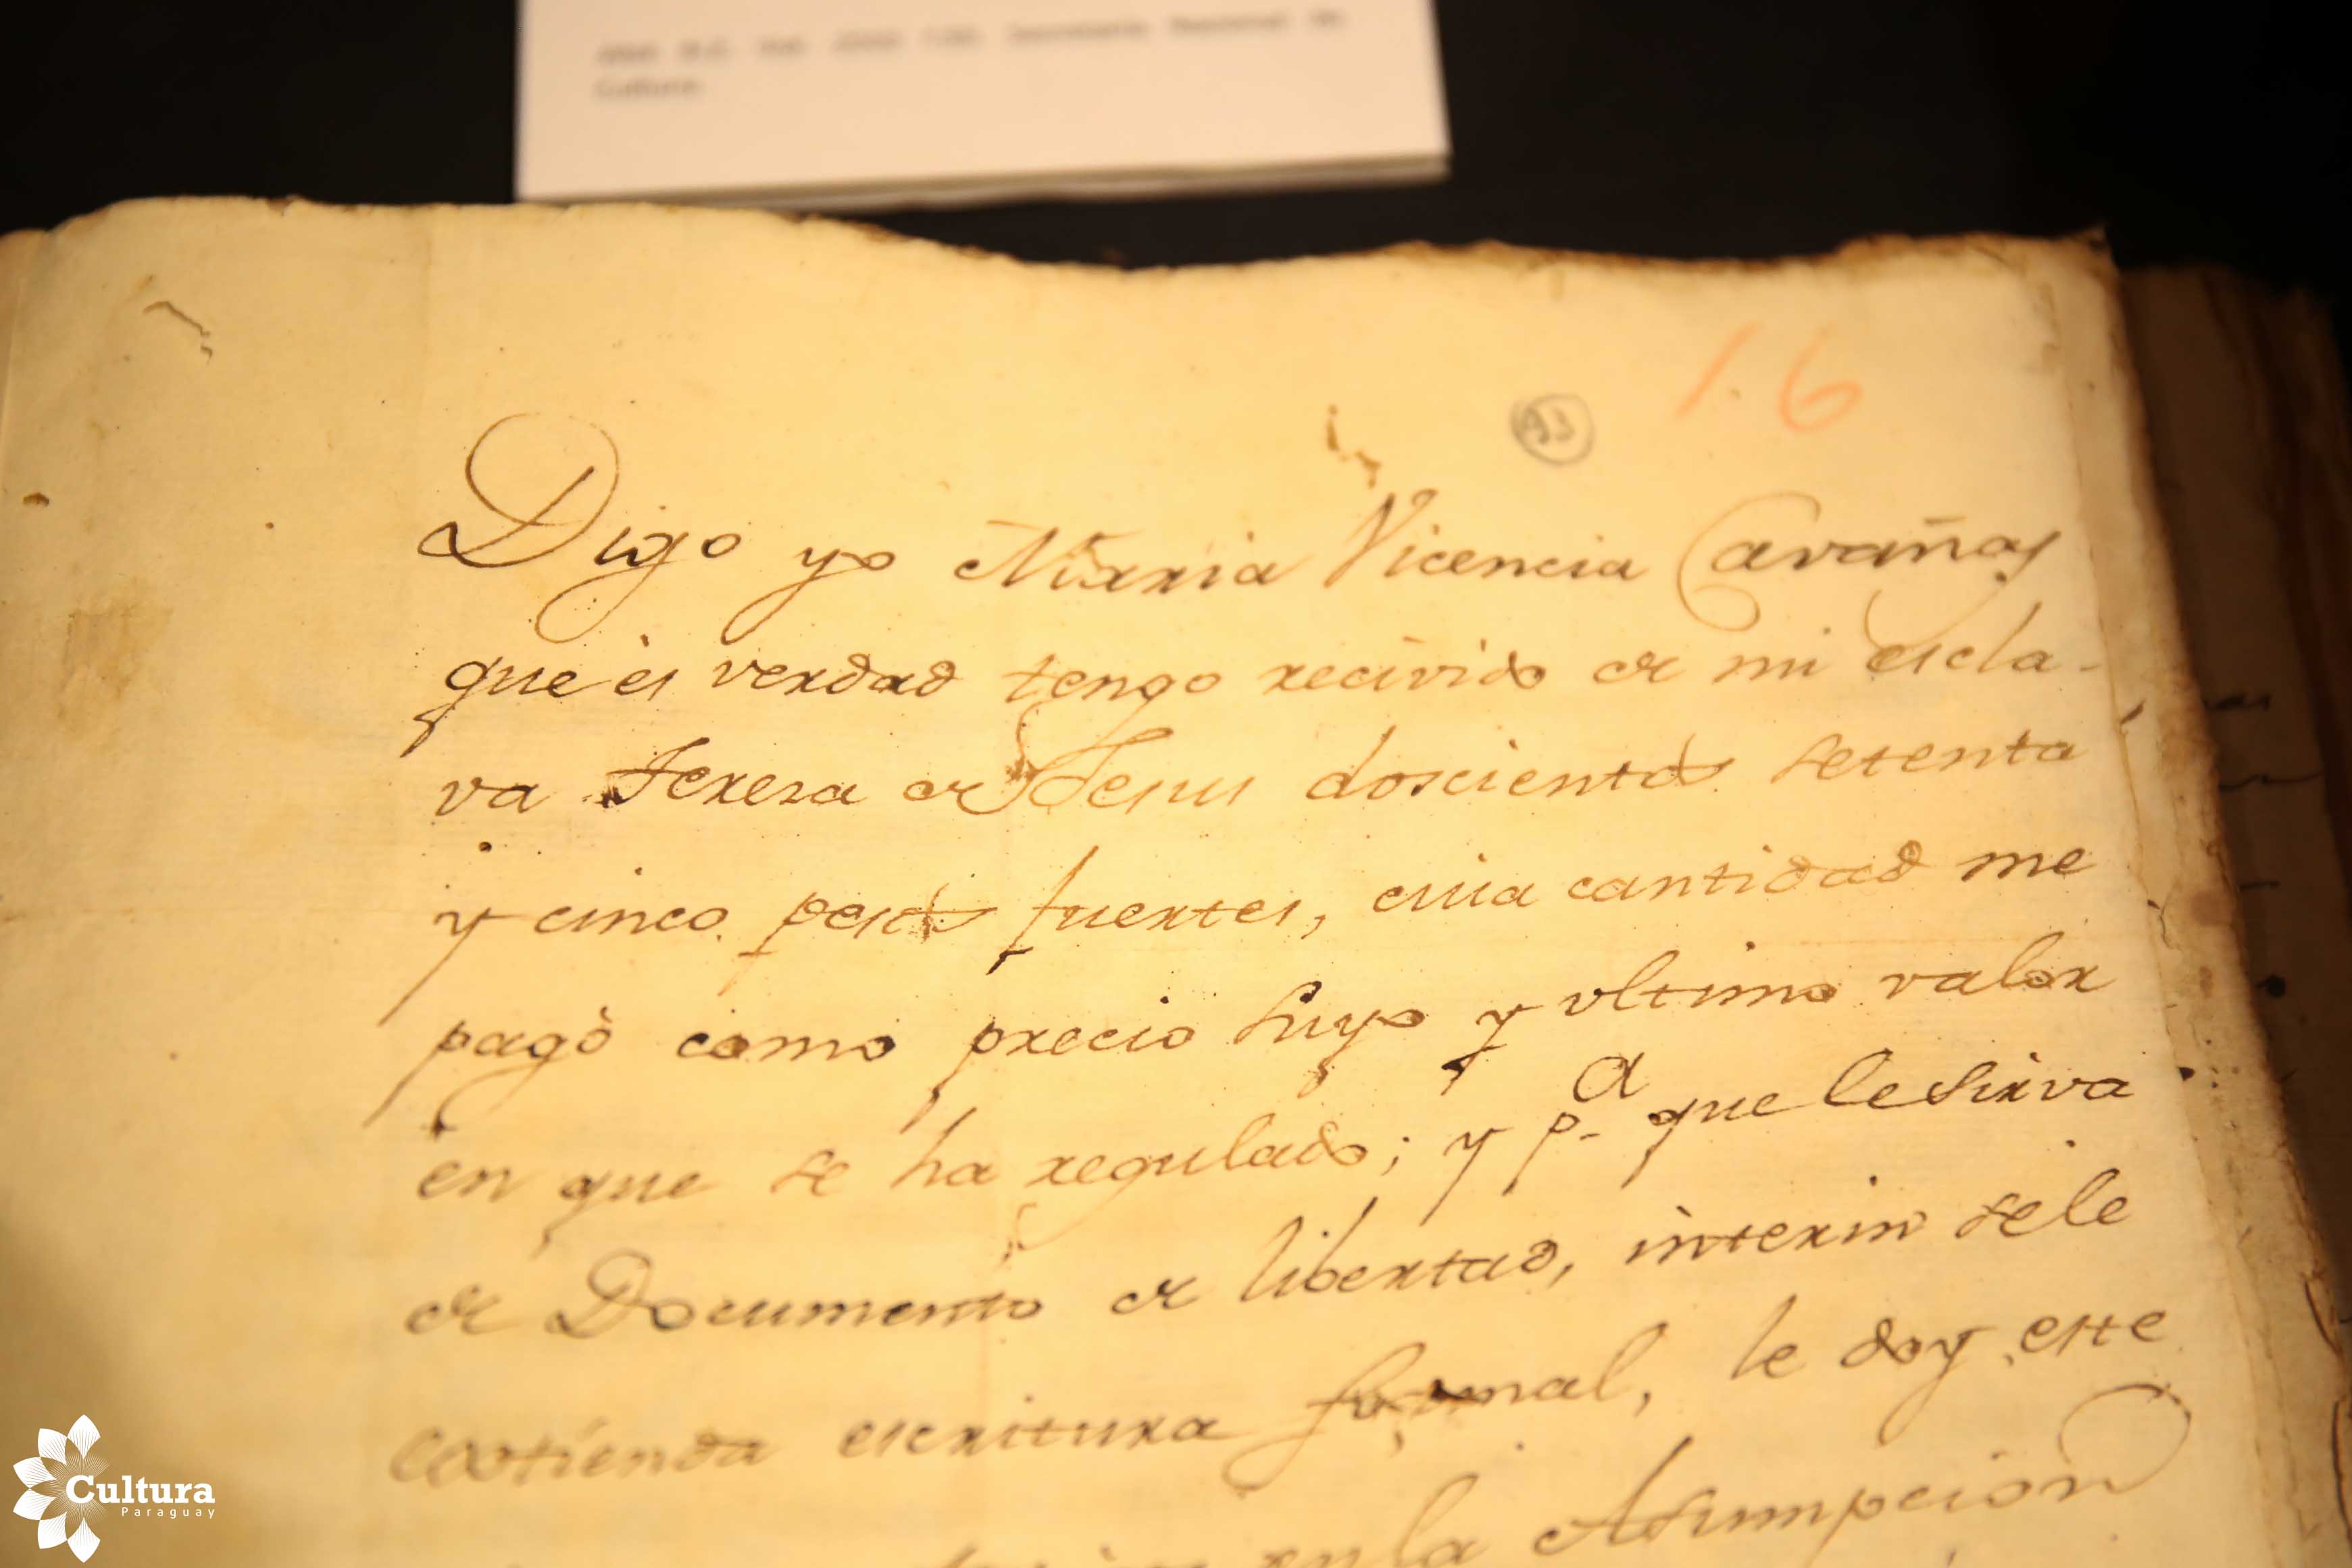 Cultura
16
93
Digo yo Maria Vicencia Cavañas
que és verdad tengo recivido de mi escla-
va Teresa de Jesus doscientos setenta
y cinco pesos fuertes, cuia cantidad me
pagò como precio suyo y ultimo valor
en que se ha regulado; y p.a que le sirva
de Documento de libertad, interin se le
extienda escritura formal, le doy este
en la Assumpcion
Cultura
Paraguay